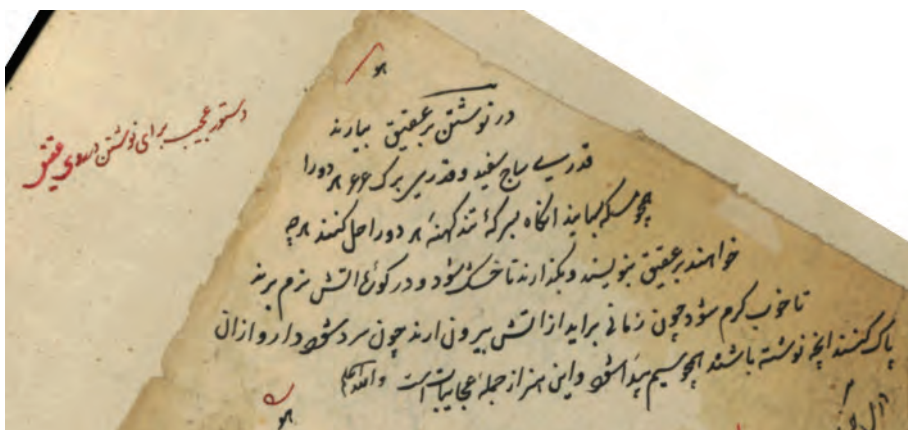 دستور عجیب برای نوشتن در روی عقیق
هو
در نوشتن بر عقیق بیارند
قدری ساج سفید و قدری برک ۶۶ هر دورا
همچو مسکه بسایند انکاه بسرکهٔ تند کهنه هر دو را حل کنند هرچه
خواهند بر عقیق بنویسند و بکذارند تا خشک شود و در کورهٔ اتش نرم برند
تا خوب کرم شود چون زمانی براید از اتش بیرون ارند چون سرد شود دارو ازان
پاک کنند انچه نوشته باشند همچو سیم پیدا شود و این هنر از جمله عجایبات است والله اعلم
هو